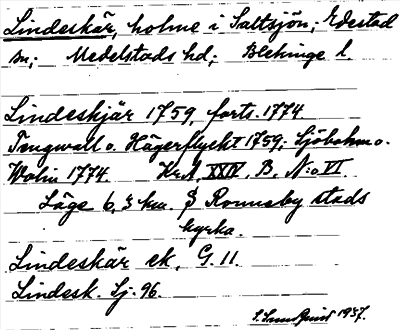 Lindeskär, holme i Saltsjön; Edestad
sn; Medelstads hd; Blekinge l.
Lindeskjär 1759, forts. 1774
Tengwall o. Hägerflycht 1759; Sjöbohm o.
Wohn 1774 KrA XXIV, B, N:o VI.
Läge 6,3 km. S Ronneby stads
kyrka.
Lindeskär ek. G. 11.
Lindesk. Sj. 96.
S. Sundquist 1937.